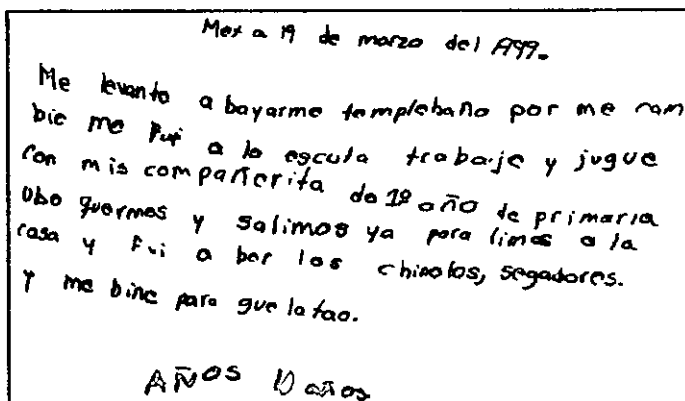 Mex a 19 de marzo del 1999.
Me levanto a bayarme templebaño por me cam
bie me Fui a la escula trabaje y jugue
con mis compañerita de 1º año de primaria
Ubo quermes y salimos ya para limos a la
casa y Fui a ber los chinolos, segadores.
Y me bine para que la tao.
AÑOS 10 años